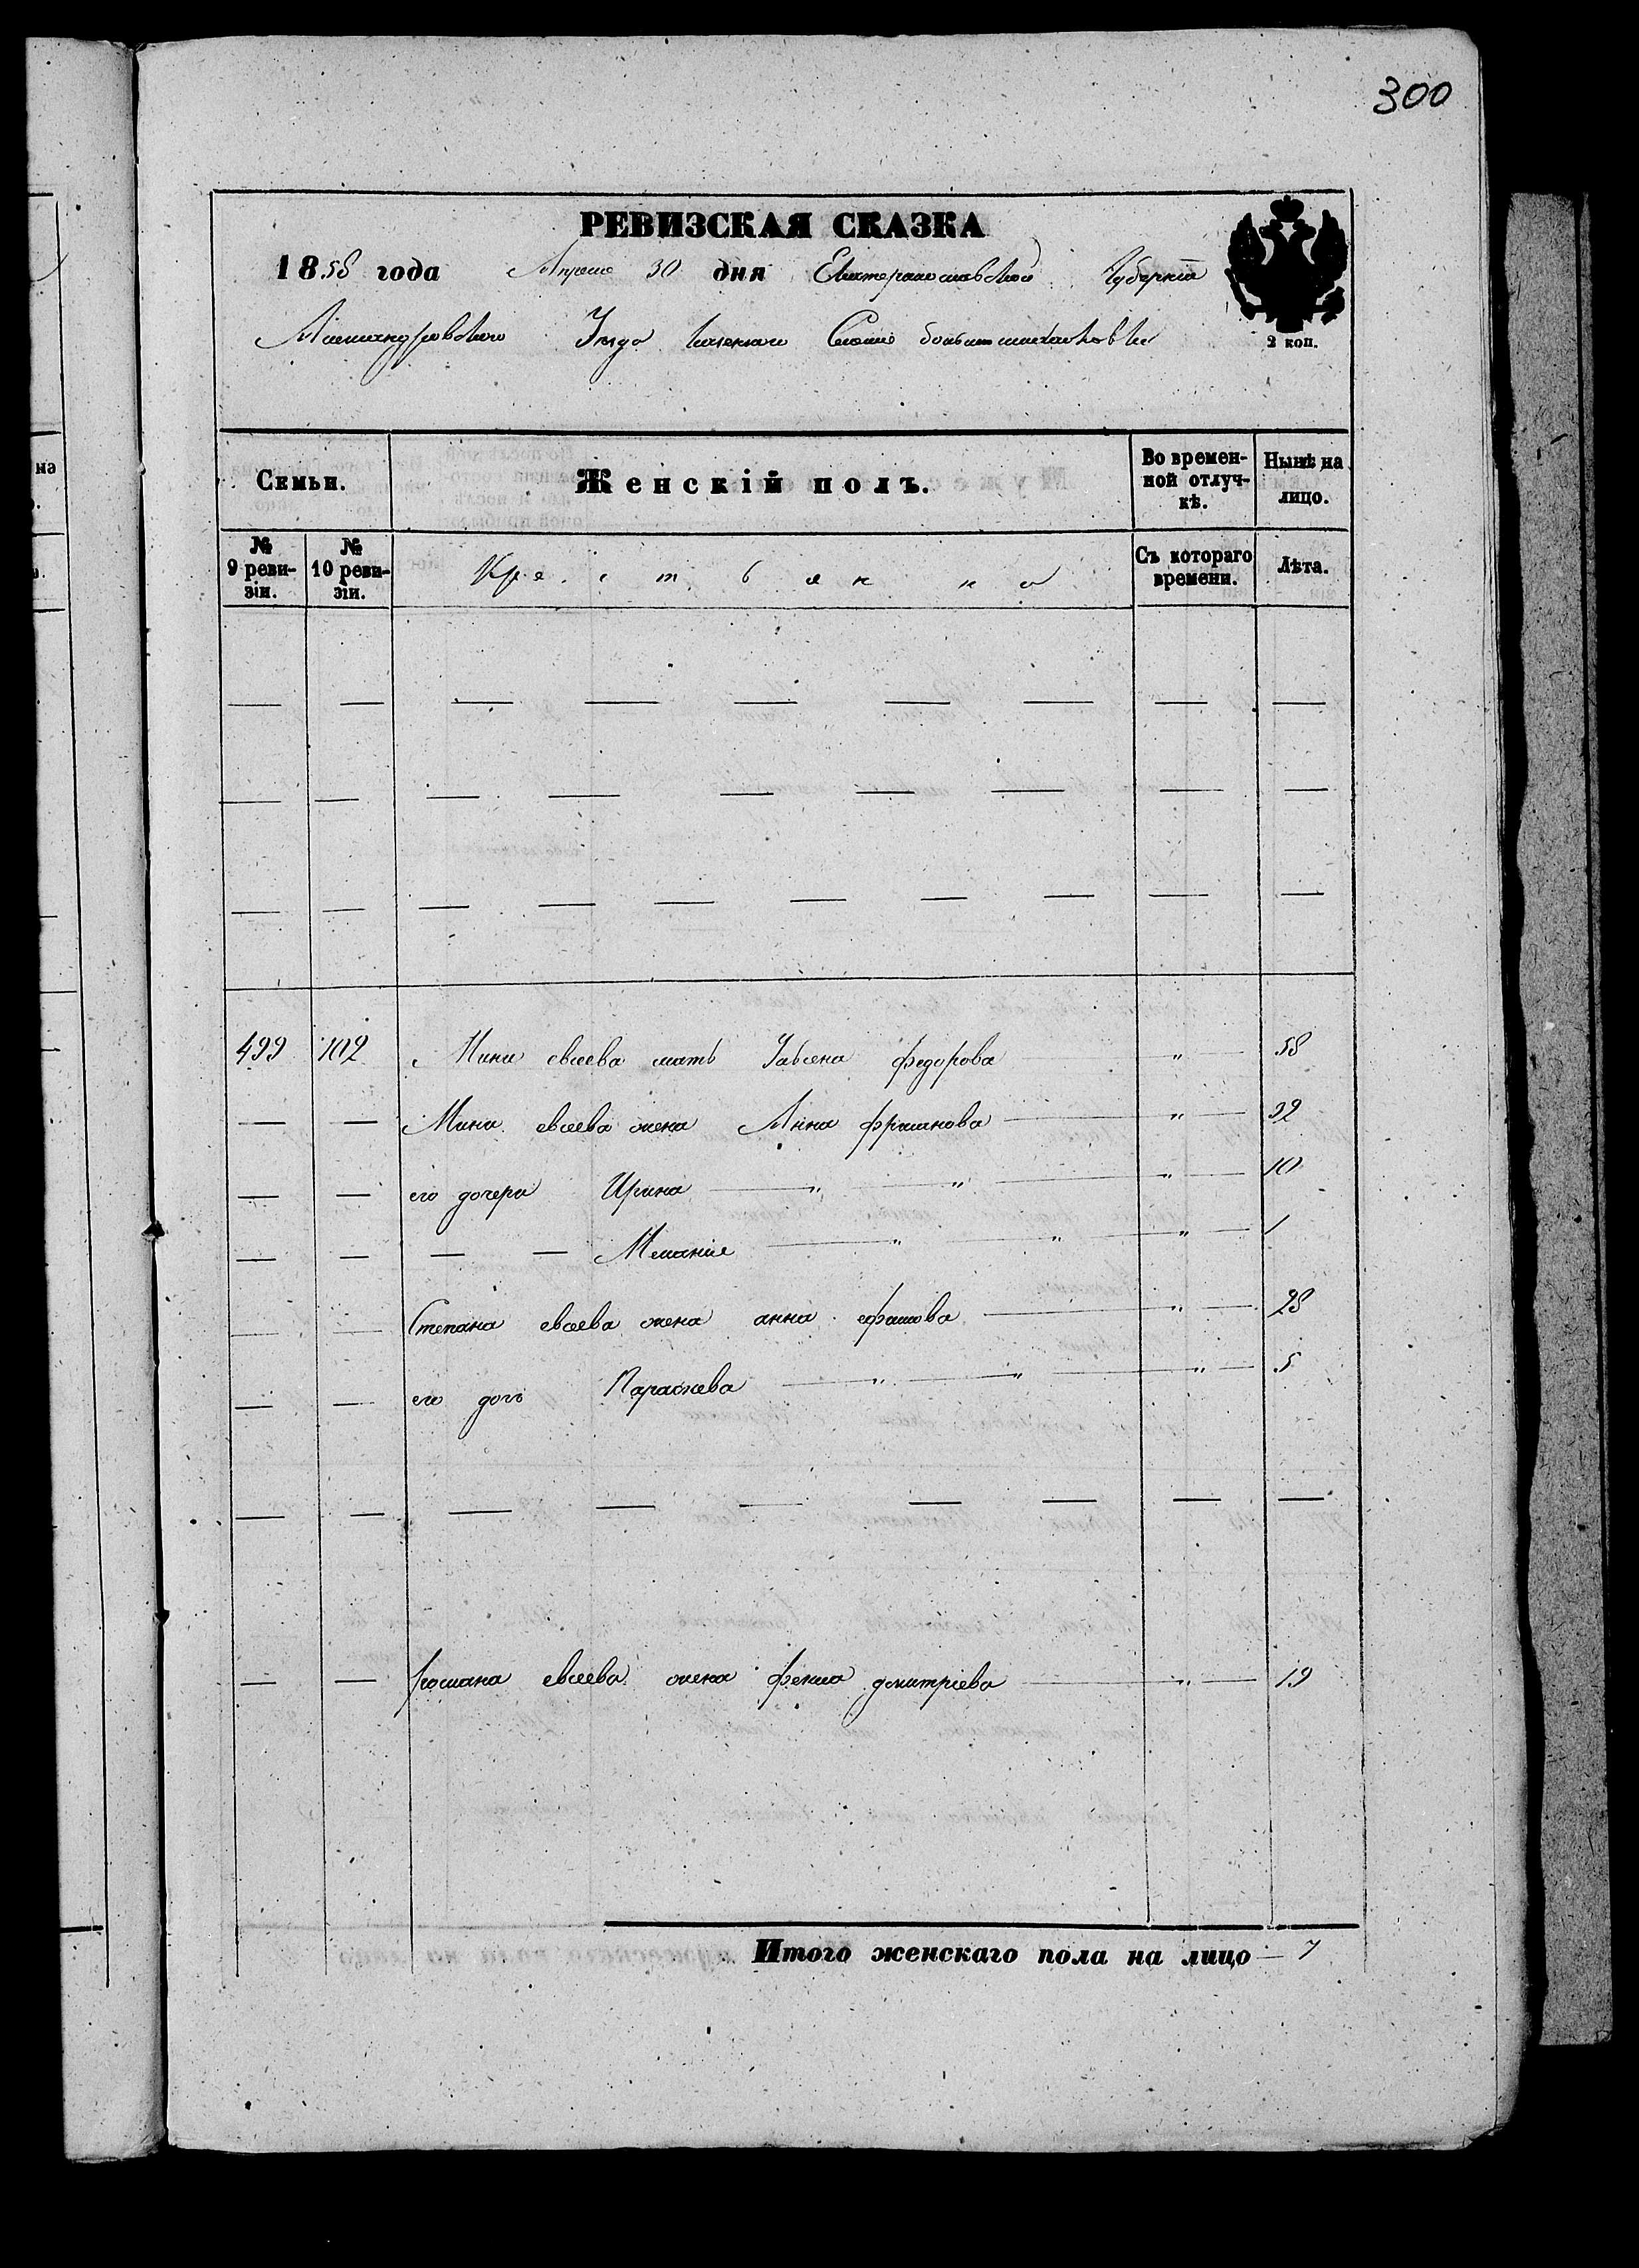 300
РЕВИЗСКАЯ СКАЗКА
1858 года Апреля 30 дня Екатеринославской Губерніи
Александровского Уезда казенного Села большемихайловки
2 коп.
Семьи. Женскій полъ. Во времен-ной отлуч-кѣ. Нынѣ на лицо.
№ 9 реви-зіи. № 10 реви-зіи. Крестьянъ Съ котораго времени. Лѣта.
499 102 Мини евсева мать Федорова " 58
Мини евсева жена Анна " 32
его дочери Ирина " " " 10
Меланія " " " 1
Степана евсева жена анна " 28
его дочь Параскева " " " 5
романа евсева жена фекла дмитріева " 19
Итого женскаго пола на лицо 7
на